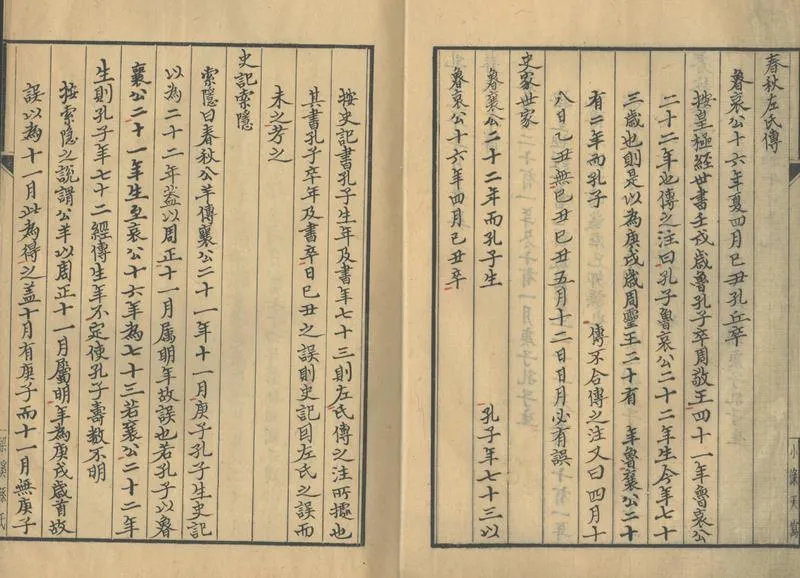 春秋左氏傳
魯哀公十六年夏四月己丑孔丘卒
按皇極經世書壬戌歲魯孔子卒周敬王四十一年魯哀公
二十二年也傳之注曰孔子魯哀公二十二年生今年七十
三歲也則是以為庚戌歲周靈王二十有 年魯襄公二十
有二年而孔子 傳不合傳之注又曰四月十
八日乙丑無己丑己丑五月十二日日月必有誤
史家世家
魯襄公二十二年而孔子生
魯哀公十六年四月己丑卒 孔子年七十三以
按史記書孔子生年及書年七十三則左氏傳之注所據也
其書孔子卒年及書卒日己丑之誤則史記因左氏之誤而
未之考之
史記索隱
索隱曰春秋公羊傳襄公二十一年十一月庚子孔子生史記
以為二十二年蓋以周正十一月屬明年故誤也若孔子以魯
襄公二十一年生至哀公十六年為七十三若襄公二十二年
生則孔子年七十二經傳生年不定使孔子壽數不明
按索隱之說謂公羊以周正十一月屬明年為庚戌歲首故
誤以為十一月此為得之蓋十月有庚子而十一月無庚子